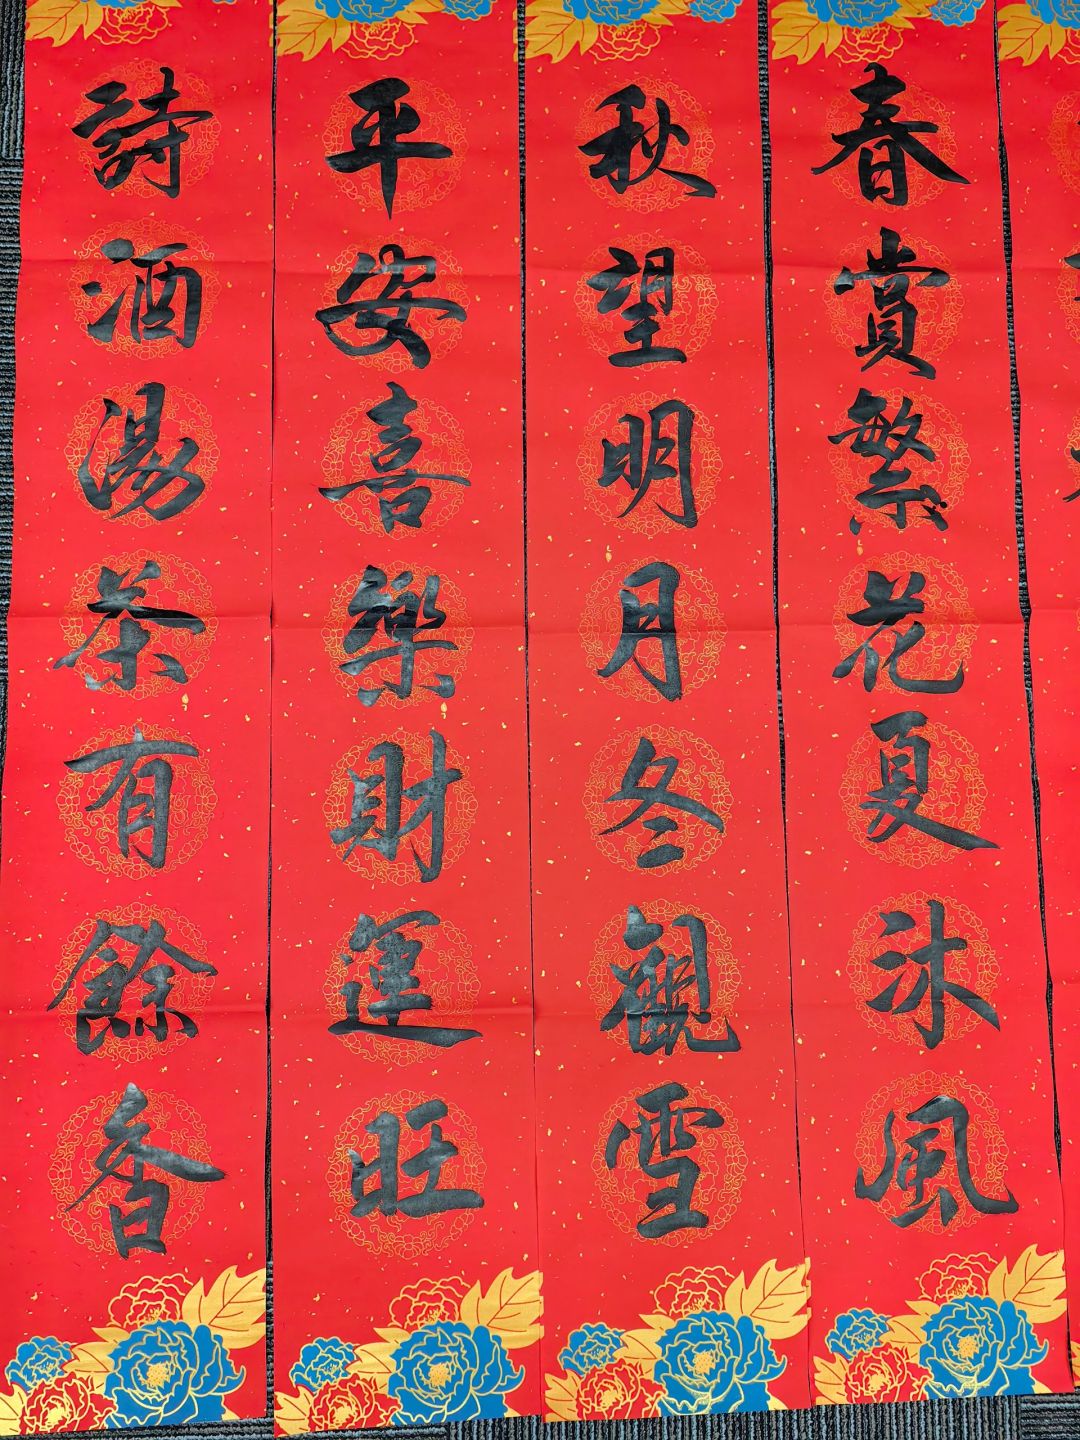 春賞繁花夏沐風
秋望明月冬觀雪
平安喜樂財運旺
詩酒湯茶有餘香